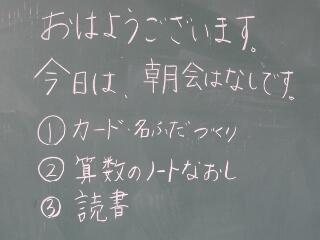 おはようございます。
今日は、朝会はなしです。
①カード・名ふだづくり
②算数のノートなおし
③読書